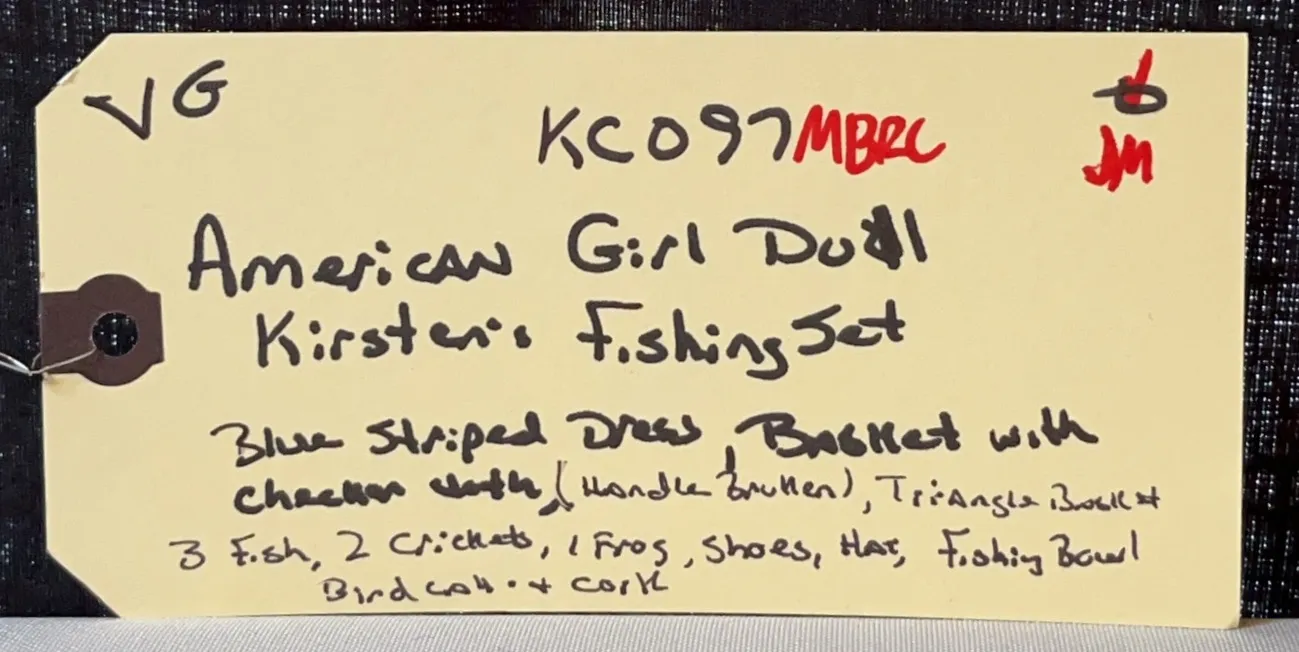 VG
KC097MBRC
JM
American Girl Doll
Kirsten's Fishing Set
Blue Striped Dress, Basket with
checker cloth, (Handle Broken), Triangle Basket
3 Fish, 2 Crickets, 1 Frog, Shoes, Hat, Fishing Bowl
Bird call + Cork